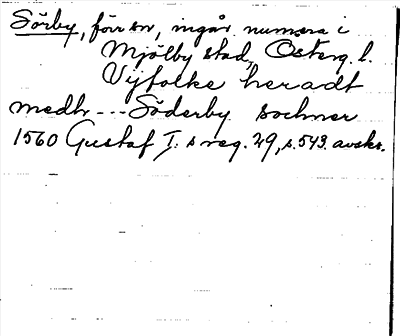 Sörby, förr sn, ingår numera i
Mjölby stad, Österg. l.
Vijfolke heradt
medh --- Söderby sochner
1560 Gustaf I:s reg. 29, s. 543. avskr.